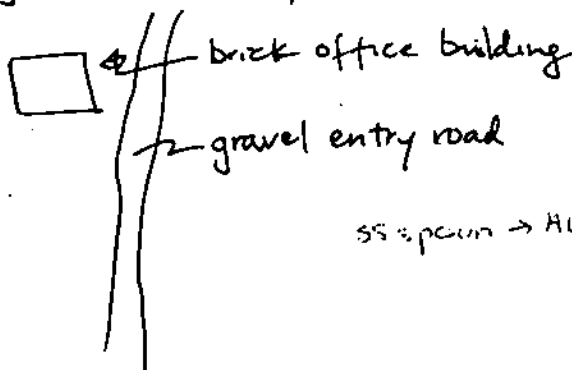 brick office building
gravel entry road